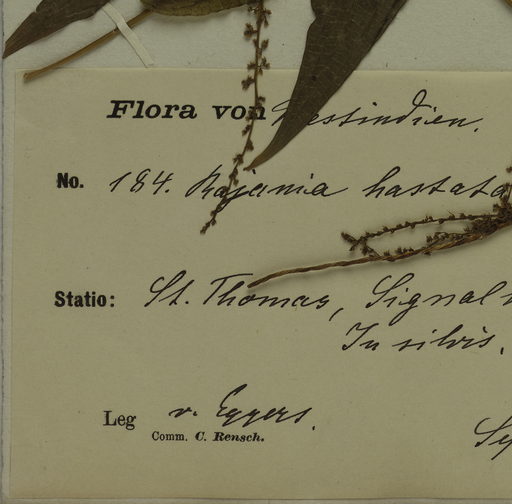 Flora von Westindien.
No. 184. Rajania hastata
Statio: St. Thomas, Signal
In silvis.
Leg v. Eggers.
Comm. C. Rensch.